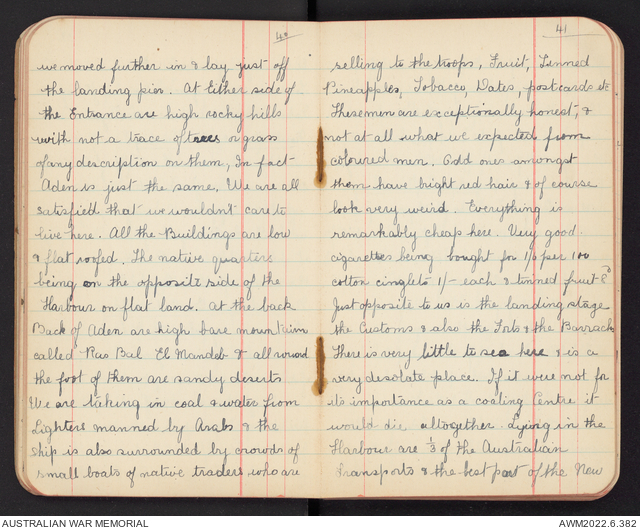 40
we moved further in & lay just off
the landing pier. At Either side of
the Entrance are high rocky hills
with not a trace of trees or grass
of any description on them, In fact
Aden is just the same. We are all
satisfied that we wouldn't care to
live here. All the Buildings are low
& flat roofed. The native quarters
being on the opposite side of the
Harbour on flat land. At the back
Back of Aden are high bare mountains
called Ras Bal El Mandeb & all round
the foot of them are sandy deserts
We are taking in coal & water from
Lighters manned by Arabs & the
ship is also surrounded by crowds of
small boats of native traders who are
41
selling to the troops, Fruit, Tinned
Pineapples, Tobacco, Dates, postcards etc
These men are exceptionally honest, &
not at all what we expected from
coloured men. Odd ones amongst
them have bright red hair & of course
look very weird. Everything is
remarkably cheap here. Very good
cigarettes being bought for 1/0 per 100
cotton singlets 1/- each & tinned fruit
Just opposite to us is the landing stage
the Customs & also the Forts & the Barracks
There is very little to see here & is a
very desolate place. If it were not for
its importance as a coaling Centre it
would die altogether. Lying in the
Harbour are 1/3 of the Australian
Transports & the best part of the New
AUSTRALIAN WAR MEMORIAL
AWM2022.6.382